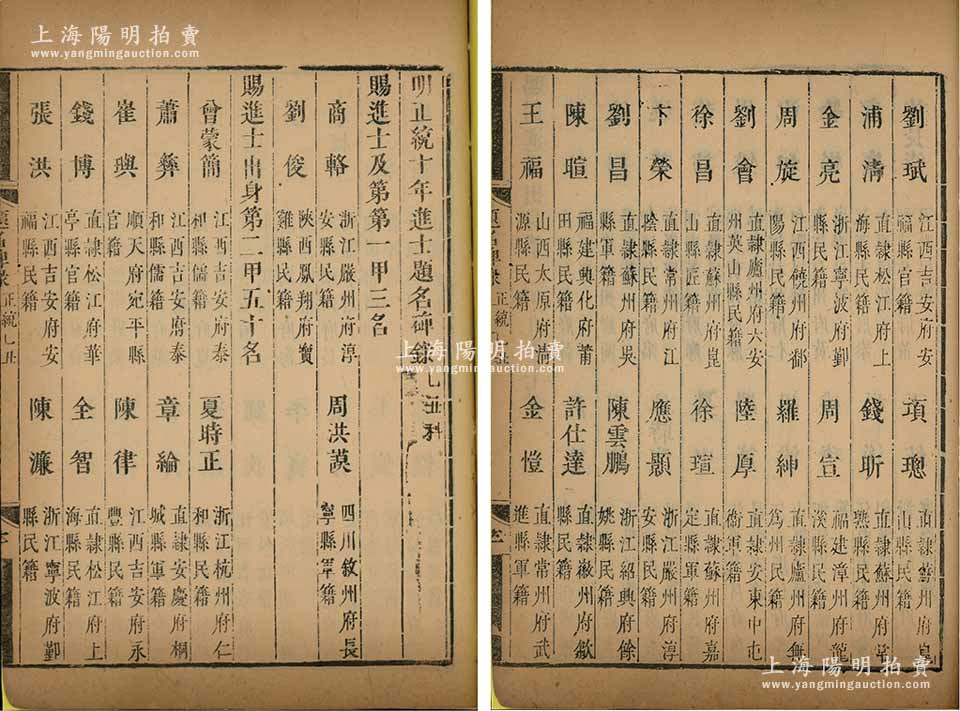 上海陽明拍賣
www.yangmingauction.com
明正統十年進士題名碑錄 乙丑科
賜進士及第第一甲三名
商輅 浙江嚴州府淳安縣民籍 周洪謨 四川敘州府長寧縣軍籍
劉俊 陜西鳳翔府寶雞縣民籍
賜進士出身第二甲五十名
曾蒙簡 江西吉安府泰和縣儒籍 夏時正 浙江杭州府仁和縣民籍
蕭彝 江西吉安府泰和縣儒籍 章綸 直隷安慶府桐城縣軍籍
崔璵 順天府宛平縣官籍 陳律 江西吉安府永豐縣民籍
錢博 直隷松江府華亭縣官籍 全智 直隷松江府上海縣民籍
張洪 江西吉安府安福縣民籍 陳濂 浙江寧波府鄞縣民籍
正統乙丑
上海陽明拍賣
www.yangmingauction.com
上海陽明拍賣
www.yangmingauction.com
劉珷 江西吉安府安福縣官籍 項璁 直隷 州府 山縣民籍
浦清 直隷松江府上海縣民籍 錢昕 直隷蘇州府常熟縣民籍
金亮 浙江寧波府鄞縣民籍 周宣 福建漳州府龍溪縣民籍
周旋 江西饒州府鄱陽縣民籍 羅紳 直隷廬州府無為州民籍
劉會 直隷廬州府六安州英山縣民籍 陸厚 直隷安東中屯衛軍籍
徐昌 直隷蘇州府崑山縣匠籍 徐瑄 直隷蘇州府嘉定縣軍籍
卞榮 直隷常州府江陰縣民籍 應顥 浙江嚴州府淳安縣民籍
劉昌 直隷蘇州府吳縣軍籍 陳雲鵬 浙江紹興府餘姚縣軍籍
陳暄 福建興化府莆田縣民籍 許仕達 直隷徽州府歙縣民籍
王福 山西太原府清源縣民籍 金愷 直隷常州府武進縣軍籍
正統
上海陽明拍賣
www.yangmingauction.com
上海陽明拍賣
www.yangmingauction.com